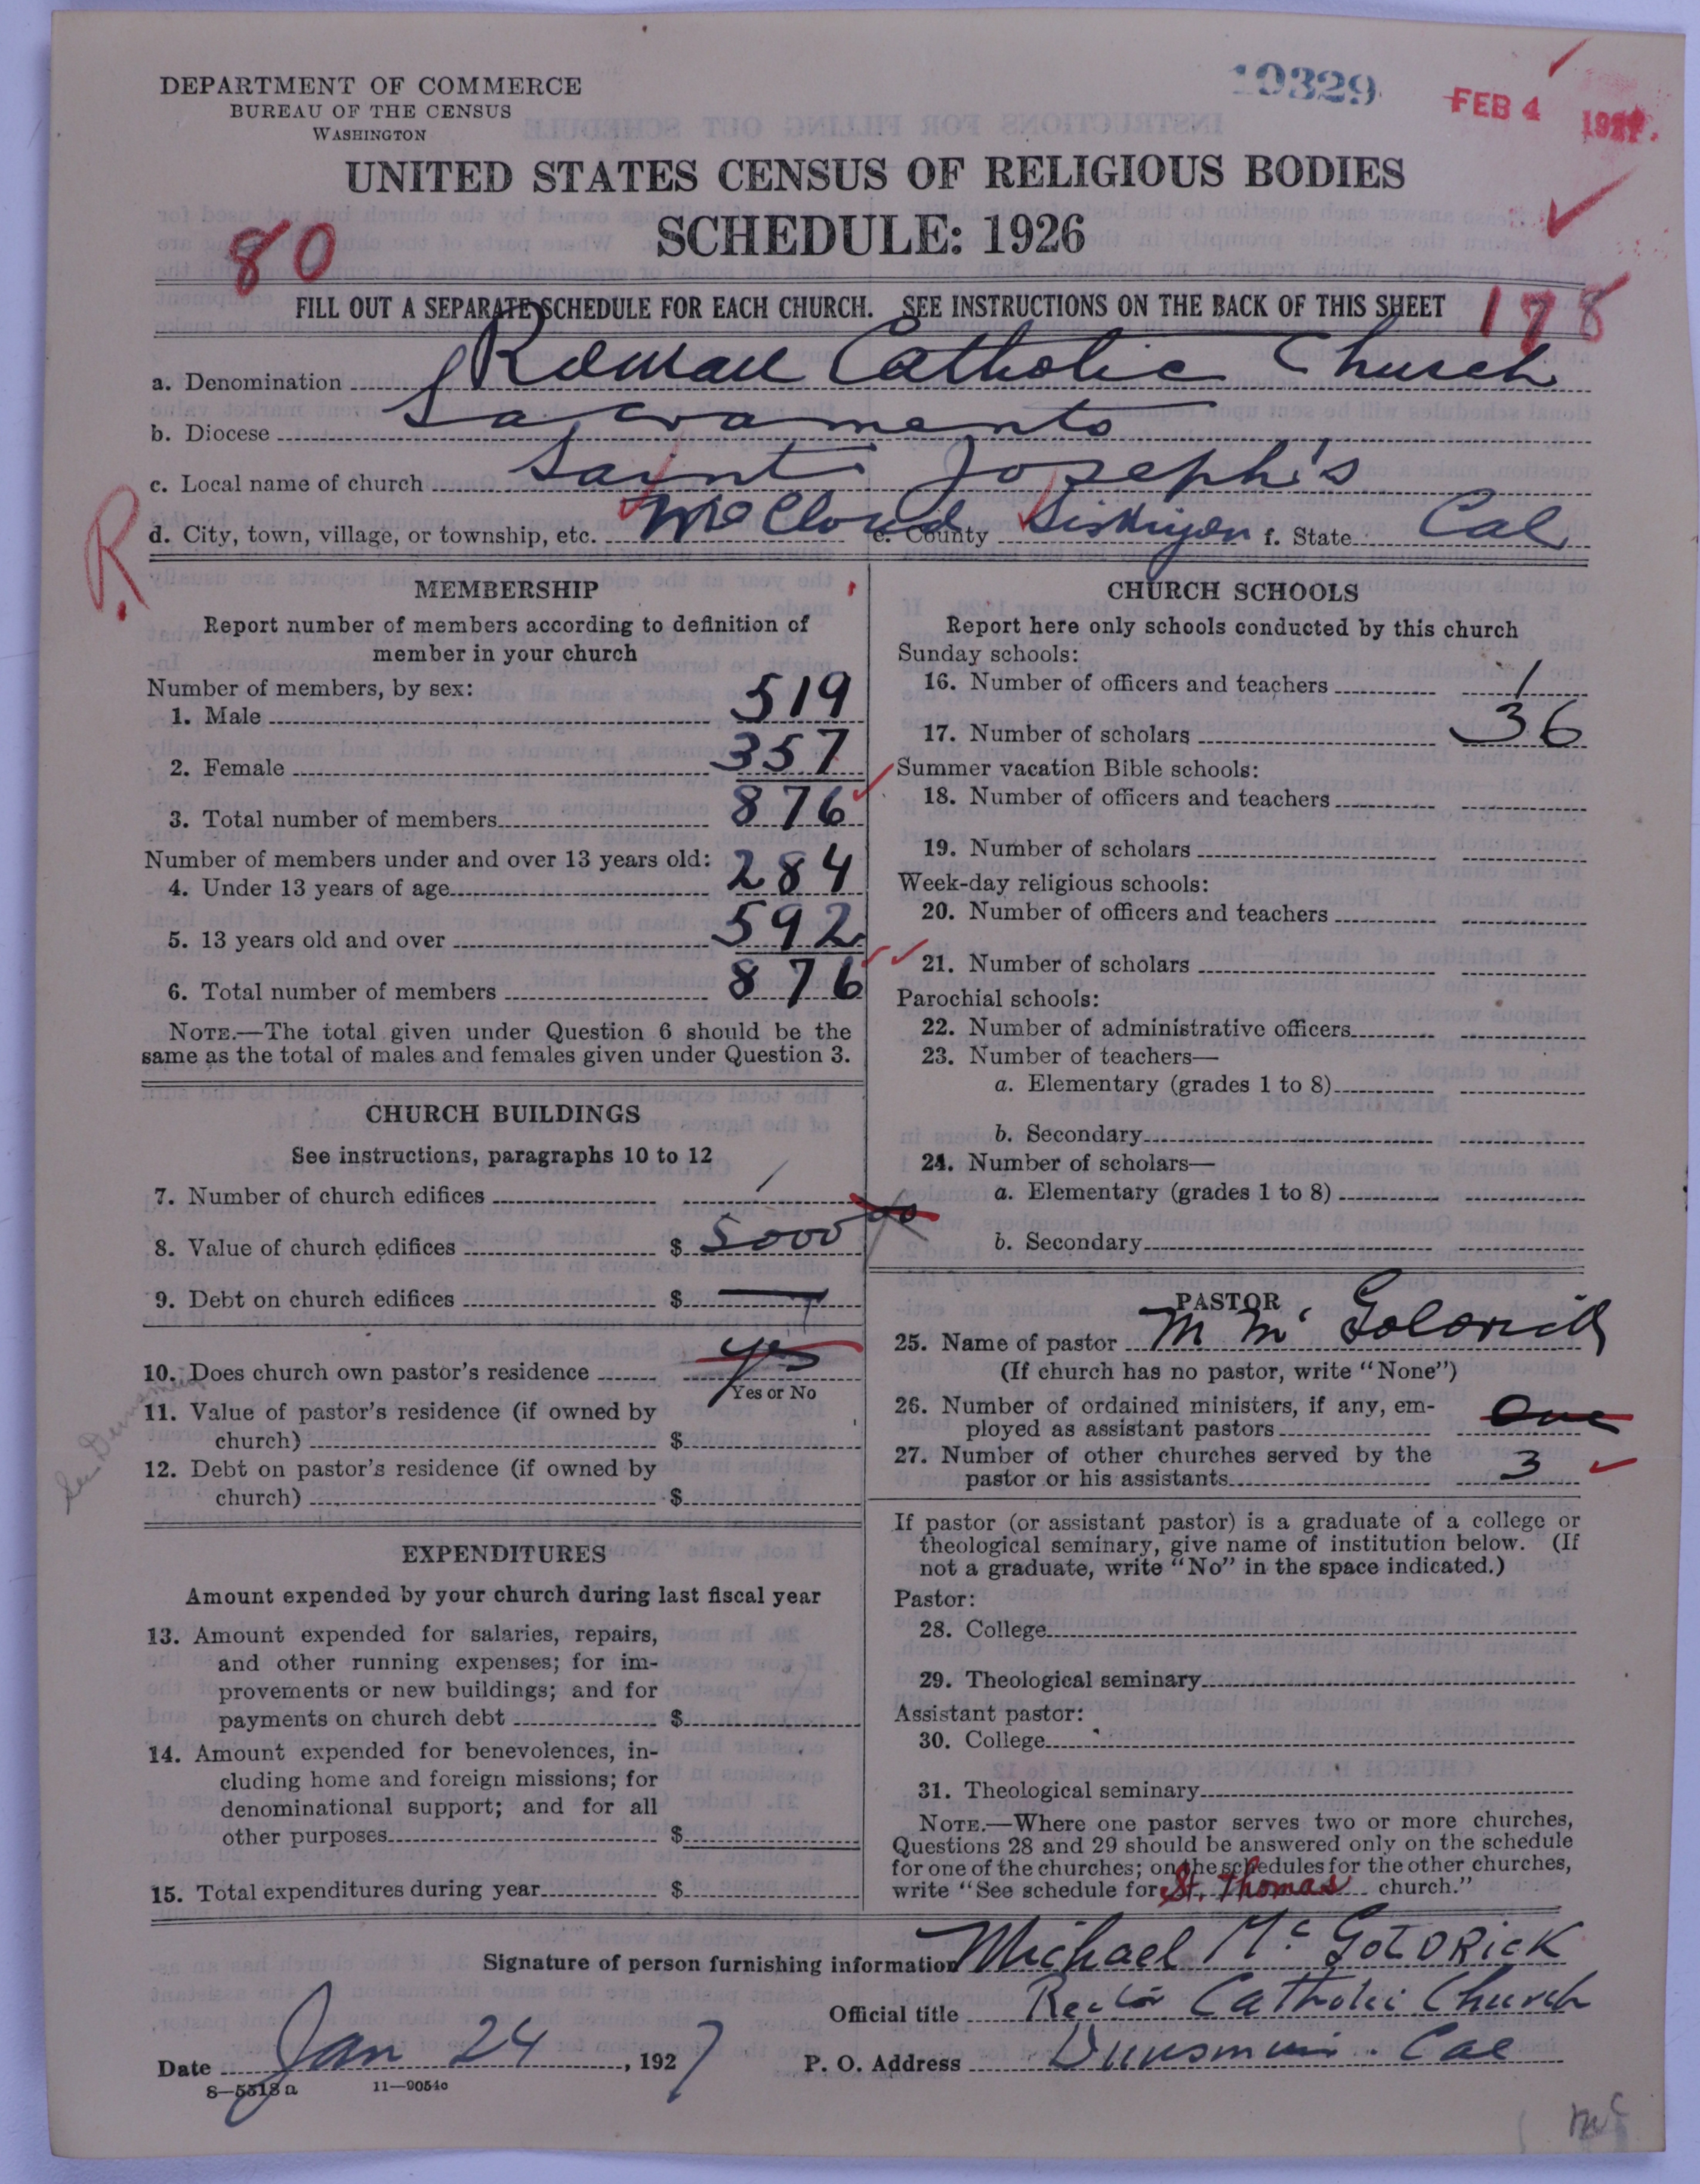 DEPARTMENT OF COMMERCE
BUREAU OF THE CENSUS
WASHINGTON
19329
FEB 4
UNITED STATES CENSUS OF RELIGIOUS BODIES
SCHEDULE: 1926
80
FILL OUT A SEPARATE SCHEDULE FOR EACH CHURCH. SEE INSTRUCTIONS ON THE BACK OF THIS SHEET
178
a. Denomination Roman Catholic Church
b. Diocese Sacramento
c. Local name of church Saint Joseph's
R.
d. City, town, village, or township, etc. McCloud e. County Siskiyou f. State Cal
MEMBERSHIP
Report number of members according to definition of
member in your church
Number of members, by sex:
1. Male 519
2. Female 357
3. Total number of members 876
Number of members under and over 13 years old:
4. Under 13 years of age 284
5. 13 years old and over 592
6. Total number of members 876
NOTE.—The total given under Question 6 should be the
same as the total of males and females given under Question 3.
CHURCH BUILDINGS
See instructions, paragraphs 10 to 12
7. Number of church edifices 1
8. Value of church edifices $ 5000 00
9. Debt on church edifices $ —
10. Does church own pastor's residence yes
Yes or No
See Dunsmuir
11. Value of pastor's residence (if owned by
church) $
12. Debt on pastor's residence (if owned by
church) $
EXPENDITURES
Amount expended by your church during last fiscal year
13. Amount expended for salaries, repairs,
and other running expenses; for im-
provements or new buildings; and for
payments on church debt $
14. Amount expended for benevolences, in-
cluding home and foreign missions; for
denominational support; and for all
other purposes $
15. Total expenditures during year $
CHURCH SCHOOLS
Report here only schools conducted by this church
Sunday schools:
16. Number of officers and teachers 1
17. Number of scholars 36
Summer vacation Bible schools:
18. Number of officers and teachers
19. Number of scholars
Week-day religious schools:
20. Number of officers and teachers
21. Number of scholars
Parochial schools:
22. Number of administrative officers
23. Number of teachers—
a. Elementary (grades 1 to 8)
b. Secondary
24. Number of scholars—
a. Elementary (grades 1 to 8)
b. Secondary
PASTOR
25. Name of pastor M Mc Goldrick
(If church has no pastor, write "None")
26. Number of ordained ministers, if any, em-
ployed as assistant pastors One
27. Number of other churches served by the
pastor or his assistants 3
If pastor (or assistant pastor) is a graduate of a college or
theological seminary, give name of institution below. (If
not a graduate, write "No" in the space indicated.)
Pastor:
28. College
29. Theological seminary
Assistant pastor:
30. College
31. Theological seminary
NOTE.—Where one pastor serves two or more churches,
Questions 28 and 29 should be answered only on the schedule
for one of the churches; on the schedules for the other churches,
write "See schedule for St. Thomas church."
Signature of person furnishing information Michael Mc GOLDRICK
Official title Rector Catholic Church
Date Jan 24, 1927 P. O. Address Dunsmuir. Cal
8—5318a 11—9054c
Mc